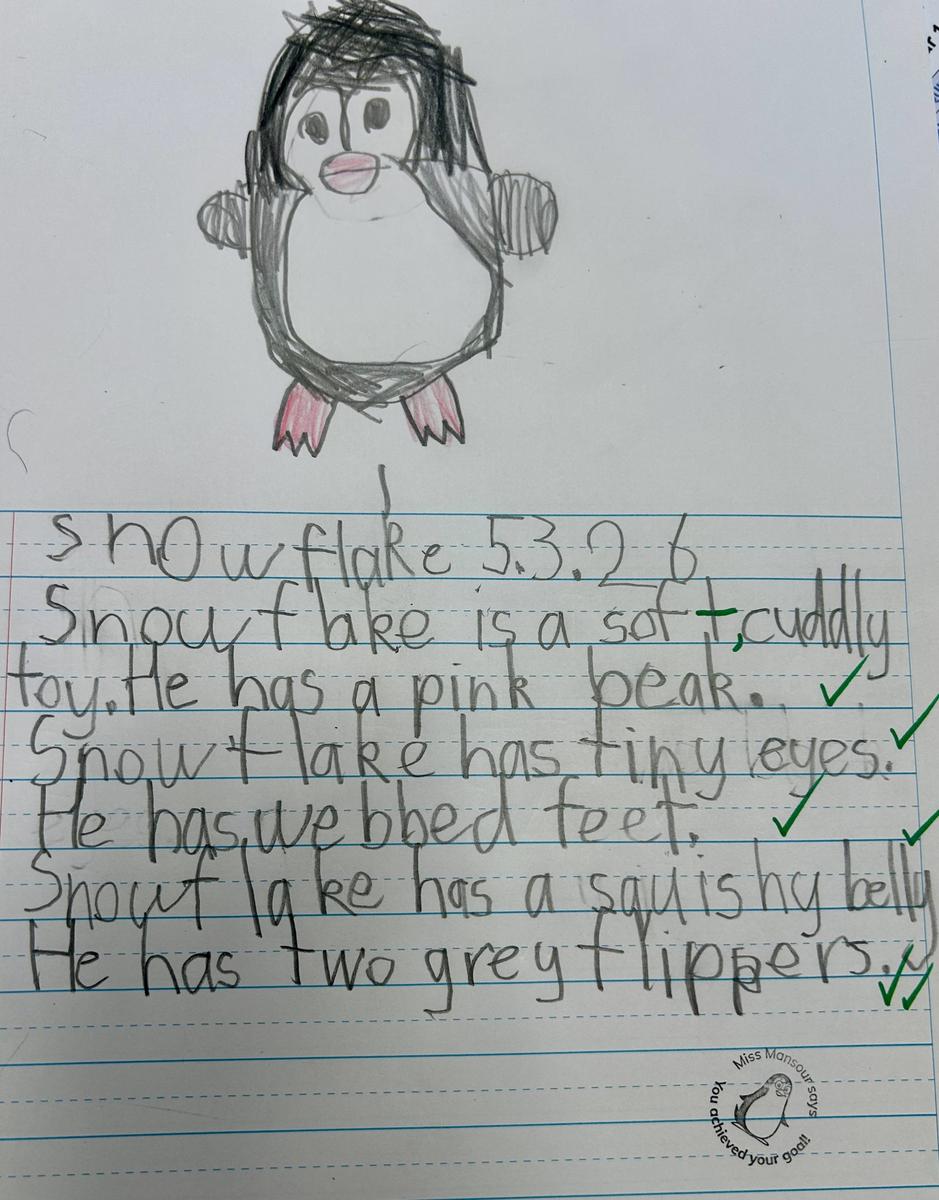 snowflake 5.3.26
Snowflake is a soft, cuddly
toy. He has a pink beak.
Snowflake has tiny eyes.
He has webbed feet.
Snowflake has a squishy belly
He has two grey flippers.
Miss Mansour says
You achieved your goal!